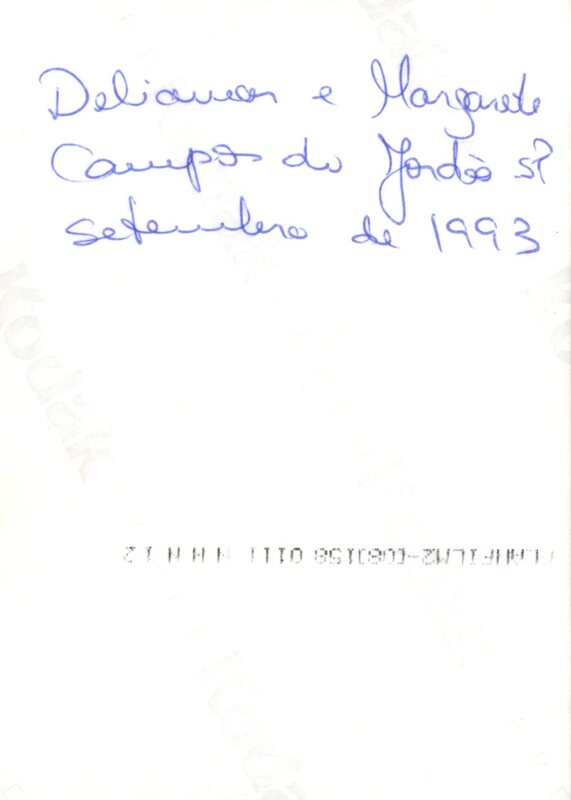 Deliamar e Margarete
Campos do Jordão SP
setembro de 1993
Kodak
Kodak